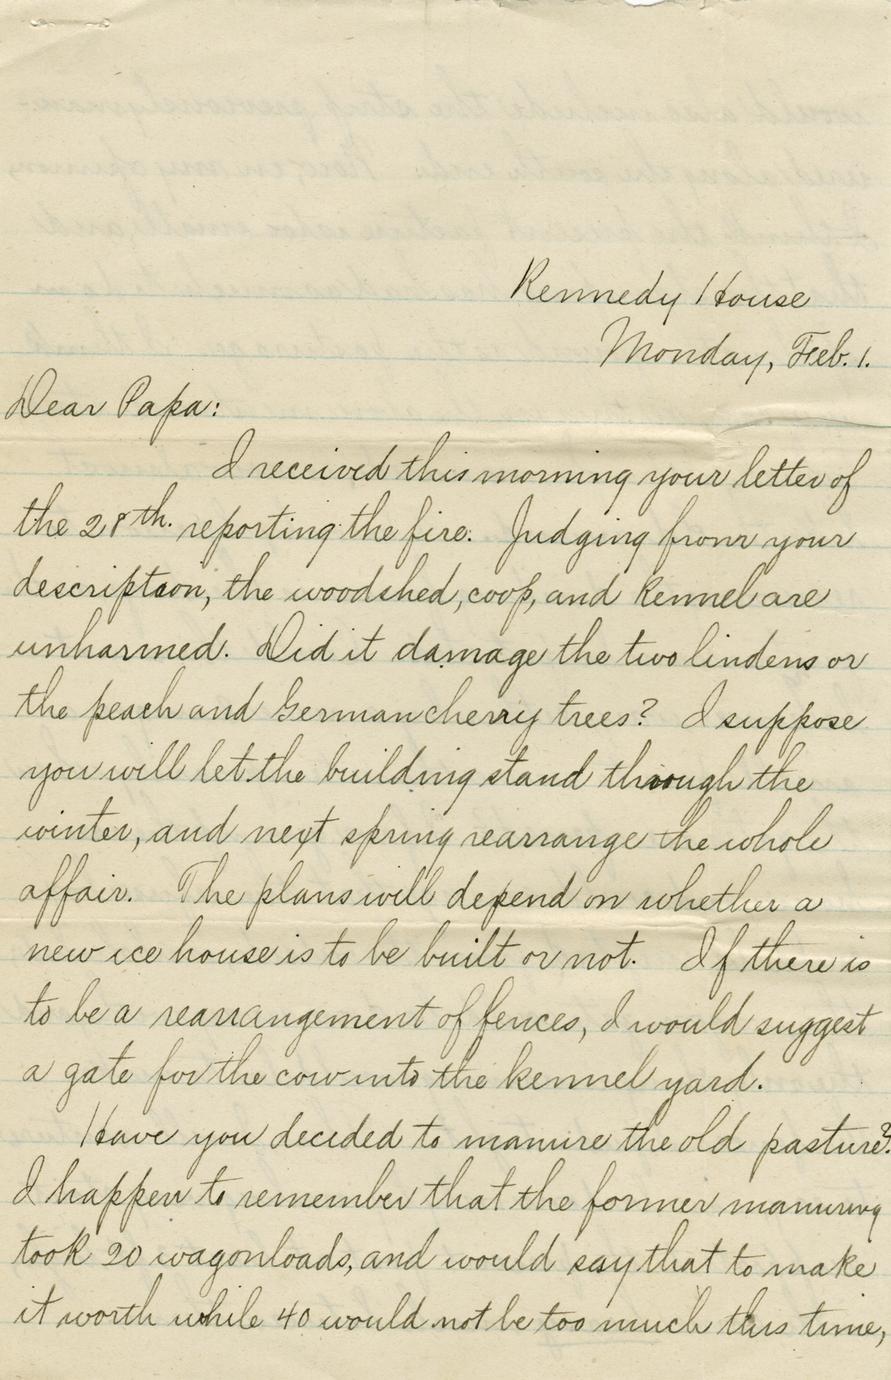 Kennedy House
Monday, Feb. 1.
Dear Papa:
I received this morning your letter of
the 28th. reporting the fire. Judging from your
description, the woodshed, coop, and kennel are
unharmed. Did it damage the two lindens or
the peach and German cherry trees? I suppose
you will let the building stand through the
winter, and next spring rearrange the whole
affair. The plans will depend on whether a
new ice house is to be built or not. If there is
to be a rearrangement of fences, I would suggest
a gate for the cow into the kennel yard.
Have you decided to manure the old pasture?
I happen to remember that the former manuring
took 20 wagonloads, and would say that to make
it worth while 40 would not be too much this time,